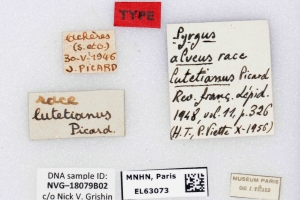 TYPE
Lichères
(S.etO.)
30-V-1946
J. PICARD
race
lutetianus
Picard.
Pyrgus
alveus race
lutetianus Picard
Rev. franç. Lépid.
1948, vol. 11, p. 326
(H.T., P. Viette X-1956)
DNA sample ID:
NVG–18079B02
c/o Nick V. Grishin
MNHN, Paris
EL63073
MUSEUM PARIS